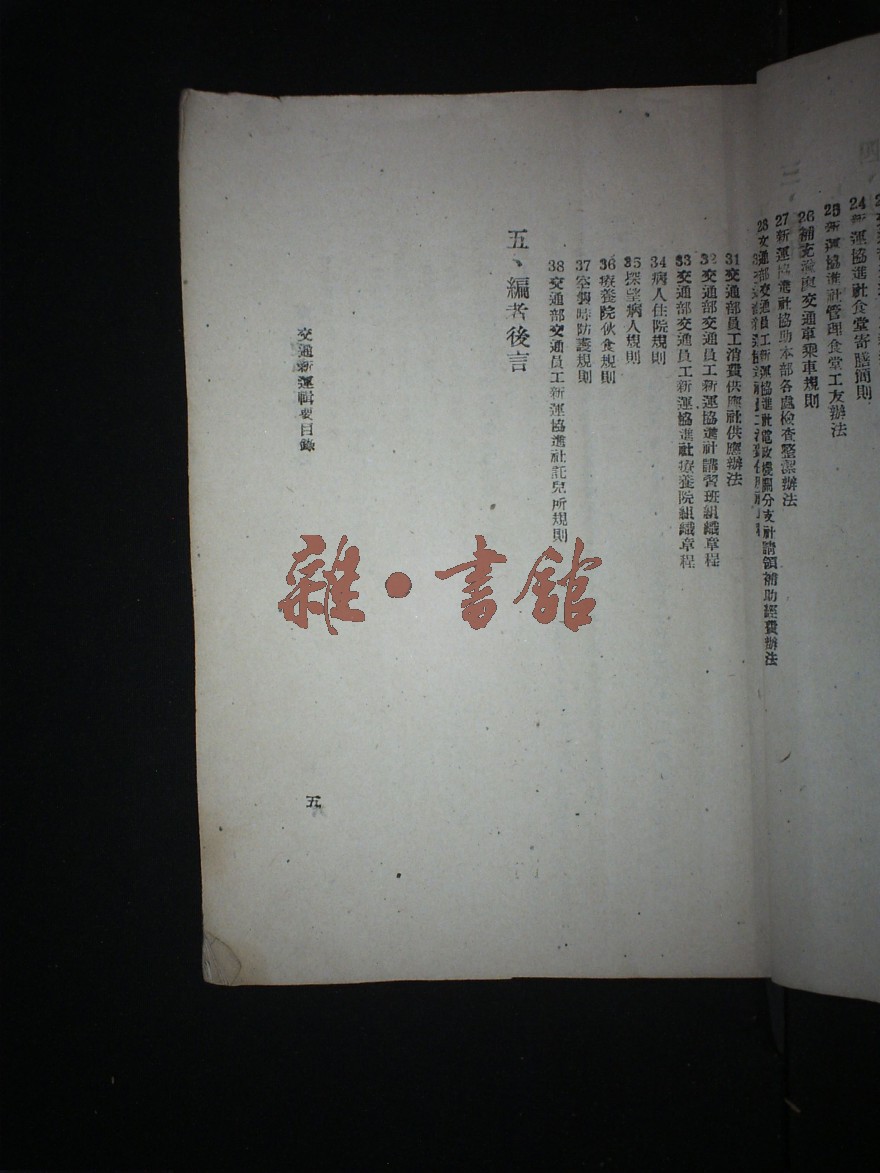 24 新運協進社食堂寄膳簡則
25 新運協進社管理食堂工友辦法
26 補充渝磁交通車乘車規則
27 新運協進社協助本部各處檢查整潔辦法
28 交通部交通員工新運協進社電政機關分支社請領補助經費辦法
31 交通部員工消費供應社供應辦法
32 交通部交通員工新運協進社講習班組織章程
33 交通部交通員工新運協進社療養院組織章程
34 病人住院規則
35 探望病人規則
36 療養院伙食規則
37 空襲時防護規則
38 交通部交通員工新運協進社託兒所規則
五、編者後言
交通新運輯要目錄
五
雜·書館